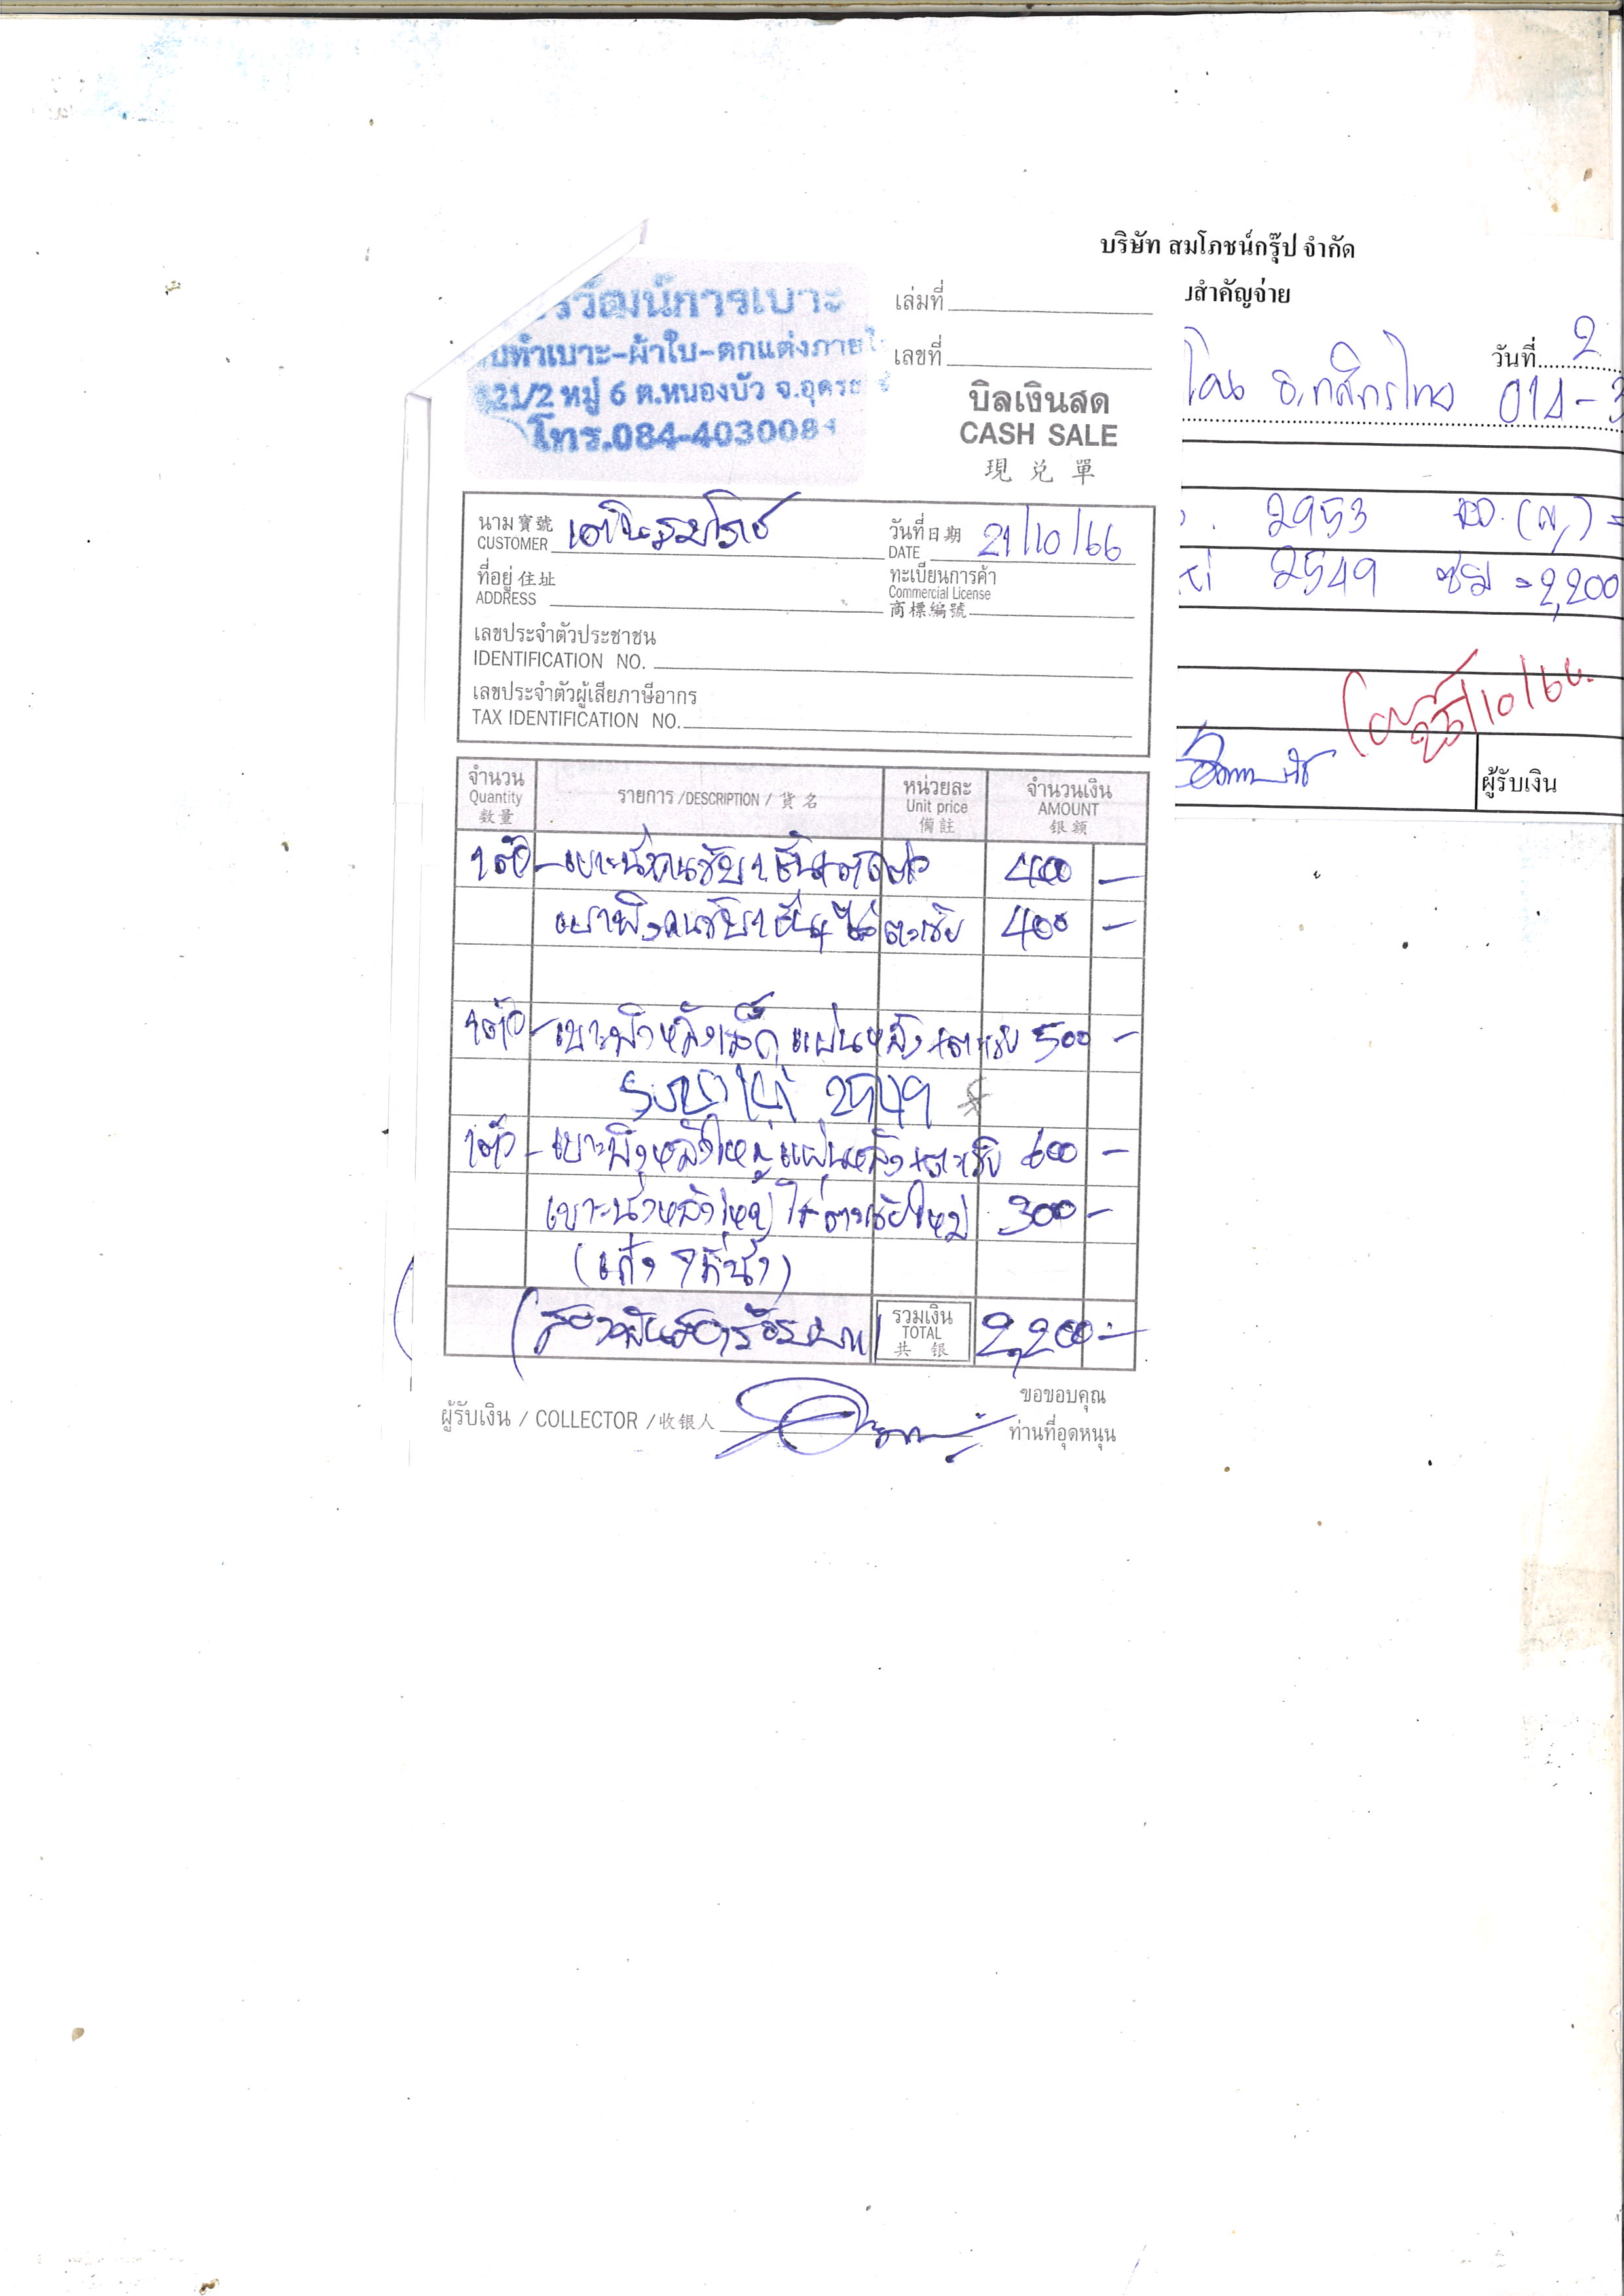 บริษัท สมโภชน์กรุ๊ป จำกัด
บสำคัญจ่าย
วันที่ 2
โอน ธ.กสิกรไทย 014-3
2953
2549 ซ่อม = 2,200
25/10/66
ผู้รับเงิน
รวัฒน์การเบาะ
บทำเบาะ-ผ้าใบ-ตกแต่งภายใ
321/2 หมู่ 6 ต.หนองบัว จ.อุดรธ
โทร.084-4030084
เล่มที่
เลขที่
บิลเงินสด
CASH SALE
現兑單
นาม 寶號
CUSTOMER เดินสมโภช
วันที่ 日期
DATE 21/10/66
ที่อยู่ 住址
ADDRESS
ทะเบียนการค้า
Commercial License
商標編號
เลขประจำตัวประชาชน
IDENTIFICATION NO.
เลขประจำตัวผู้เสียภาษีอากร
TAX IDENTIFICATION NO.
จำนวน รายการ /DESCRIPTION / 貨名 หน่วยละ จำนวนเงิน
Quantity Unit price AMOUNT
数量 備註 银额
1 ตัว - เบาะนั่งคนขับ 400 -
เบาะพิงคนขับ 400 -
1 ตัว - เบาะพิงหลังเล็ก แผ่นหลัง 500 -
2549
1 ตัว - เบาะพิงหลังใหญ่ แผ่นหลัง 600 -
เบาะนั่งหลังใหญ่ 300 -
(สองพันสองร้อยบาท) รวมเงิน 2,200 -
TOTAL
共银
ผู้รับเงิน / COLLECTOR /收银人
ขอขอบคุณ
ท่านที่อุดหนุน